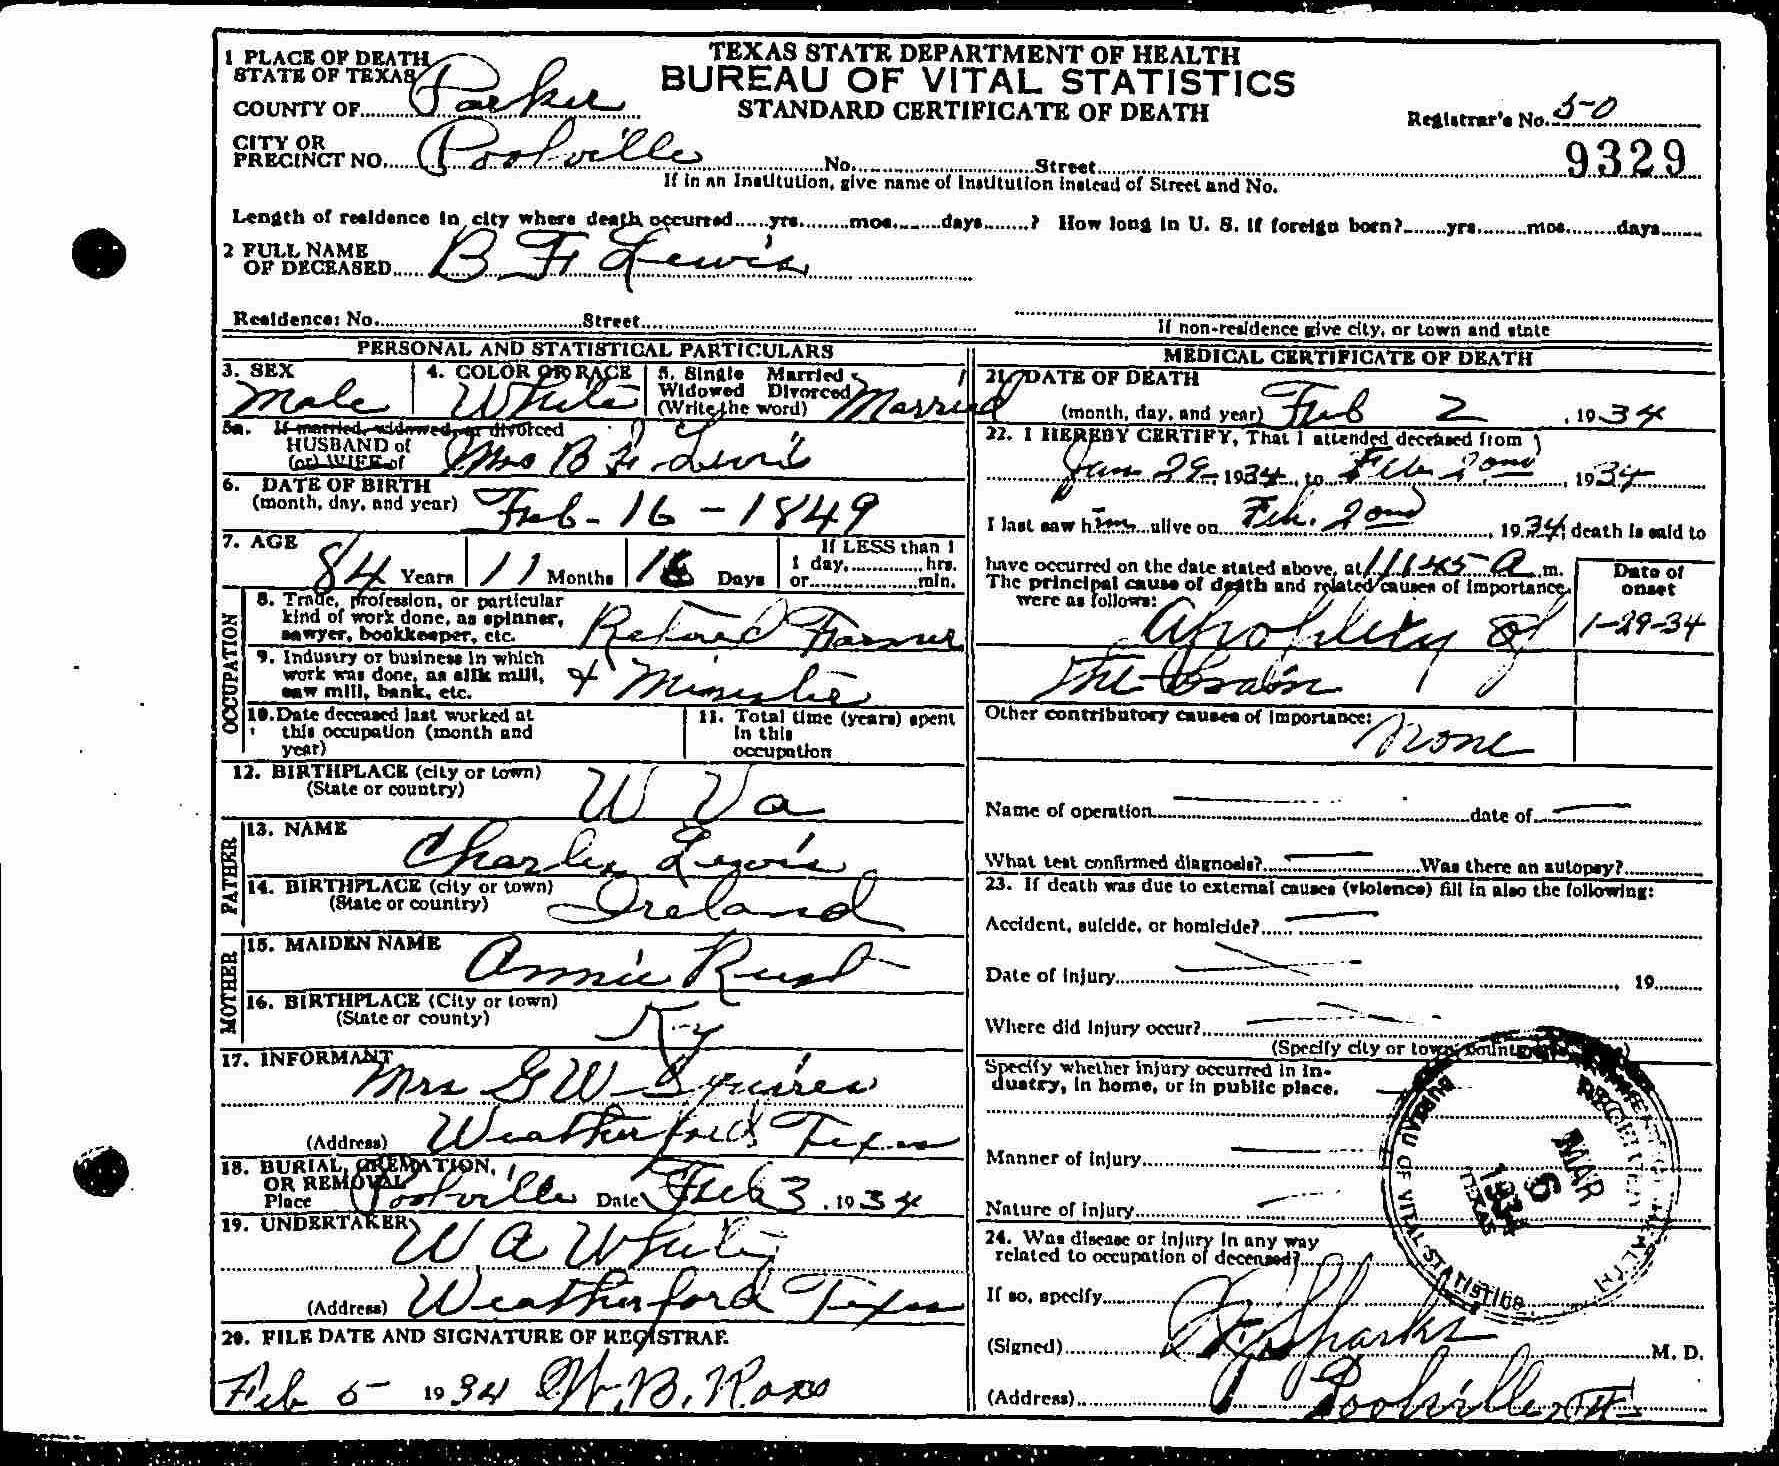 TEXAS STATE DEPARTMENT OF HEALTH
BUREAU OF VITAL STATISTICS
STANDARD CERTIFICATE OF DEATH
1 PLACE OF DEATH
STATE OF TEXAS
COUNTY OF Parker
Registrar's No. 50
CITY OR
PRECINCT NO. Poolville No. Street
9329
If in an Institution, give name of Institution instead of Street and No.
Length of residence in city where death occurred yrs. mos. days ? How long in U. S. if foreign born? yrs. mos. days
2 FULL NAME
OF DECEASED B F Lewis
Residence: No. Street
If non-residence give city, or town and state
PERSONAL AND STATISTICAL PARTICULARS
3. SEX
Male
4. COLOR OR RACE
White
5. Single Married
Widowed Divorced
(Write the word) Married
5a. If married, widowed, or divorced
HUSBAND of
(or) WIFE of Mrs B F Lewis
6. DATE OF BIRTH
(month, day, and year) Feb-16-1849
7. AGE
84 Years 11 Months 16 Days
If LESS than 1
1 day, hrs.
or min.
OCCUPATION
8. Trade, profession, or particular
kind of work done, as spinner,
sawyer, bookkeeper, etc. Retired Farmer
9. Industry or business in which
work was done, as silk mill,
saw mill, bank, etc. & Minister
10. Date deceased last worked at
this occupation (month and
year)
11. Total time (years) spent
in this
occupation
12. BIRTHPLACE (city or town)
(State or country) W Va
FATHER
13. NAME
Charles Lewis
14. BIRTHPLACE (city or town)
(State or country) Ireland
MOTHER
15. MAIDEN NAME
Annie Rust
16. BIRTHPLACE (City or town)
(State or county) Ky
17. INFORMANT
Mrs G W Squires
(Address) Weatherford Texas
18. BURIAL, CREMATION,
OR REMOVAL
Place Poolville Date Feb 3, 1934
19. UNDERTAKER
W A White
(Address) Weatherford Texas
20. FILE DATE AND SIGNATURE OF REGISTRAR
Feb 5 1934 W. B. Ross
MEDICAL CERTIFICATE OF DEATH
21. DATE OF DEATH
(month, day, and year) Feb 2, 1934
22. I HEREBY CERTIFY, That I attended deceased from
Jan 29 1934, to Feb 2ond, 1934
I last saw him alive on Feb. 2ond, 1934; death is said to
have occurred on the date stated above, at 11:45 A m.
The principal cause of death and related causes of importance
were as follows:
Date of
onset
Apoplexy of 1-29-34
The Brain
Other contributory causes of importance:
None
Name of operation date of
What test confirmed diagnosis? Was there an autopsy?
23. If death was due to external causes (violence) fill in also the following:
Accident, suicide, or homicide?
Date of injury 19
Where did injury occur?
(Specify city or town, county
Specify whether injury occurred in in-
dustry, in home, or in public place.
Manner of injury
Nature of injury
24. Was disease or injury in any way
related to occupation of deceased?
If so, specify
(Signed) Sparks M. D.
(Address) Poolville
BUREAU OF VITAL STATISTICS
RECEIVED
MAR
6
1934
TEXAS